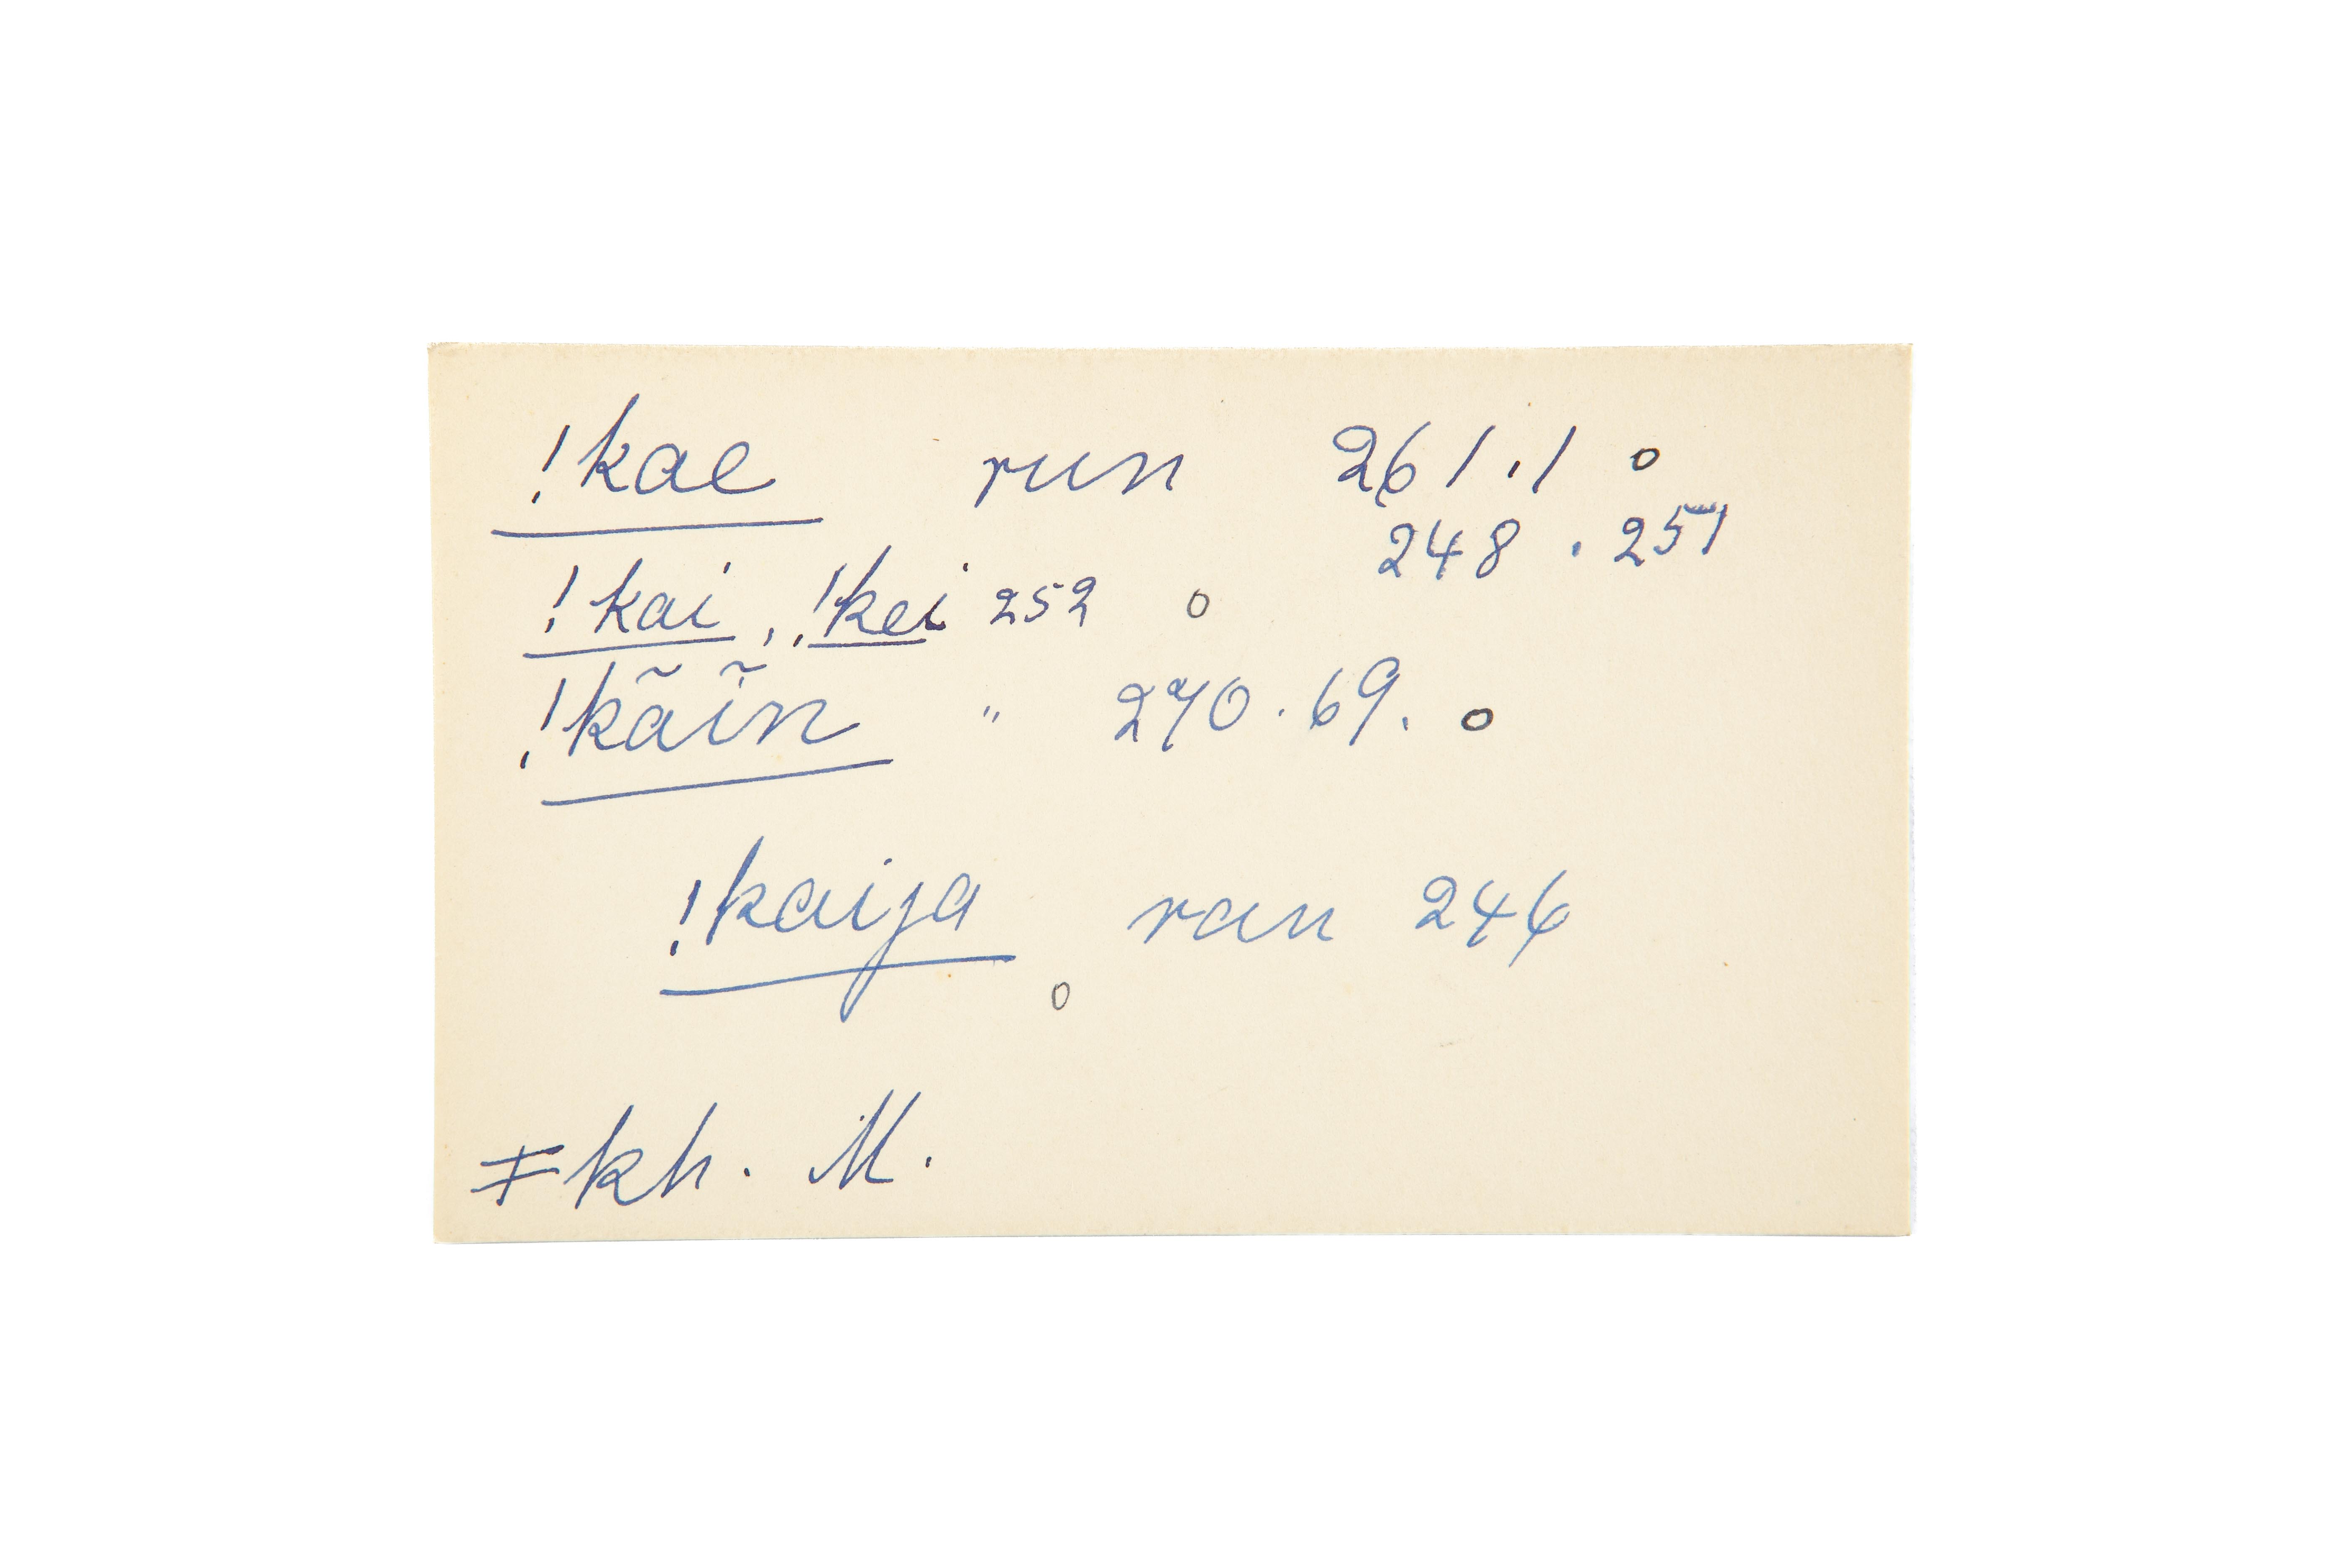 !kae run 261.1 o
248 . 251
!kai , !kei 252 o
!kãĩn " 270.69. o
!kaija ran 246
o
ǂkh. M.